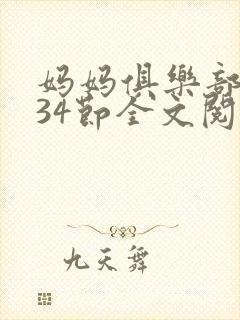 妈妈俱樂部
34節全文閱
九天舞